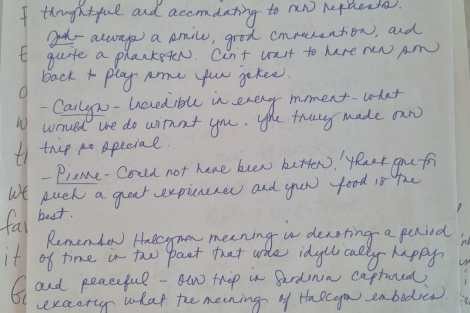 thoughtful and accomodating to our requests.
Jack - always a smile, good conversation, and
quite a prankster. Can't wait to have our son
back to play some fun jokes.
- Caitlyn - Incredible in every moment - what
would we do without you. You truly made our
trip so special.
- Pierre - Could not have been better! Thank you for
such a great experience and your food is the
best.
Remember Halcyon meaning is denoting a period
of time in the past that was idyllically happy
and peaceful - Our trip in Sardinia captured
exactly what the meaning of Halcyon embodies.